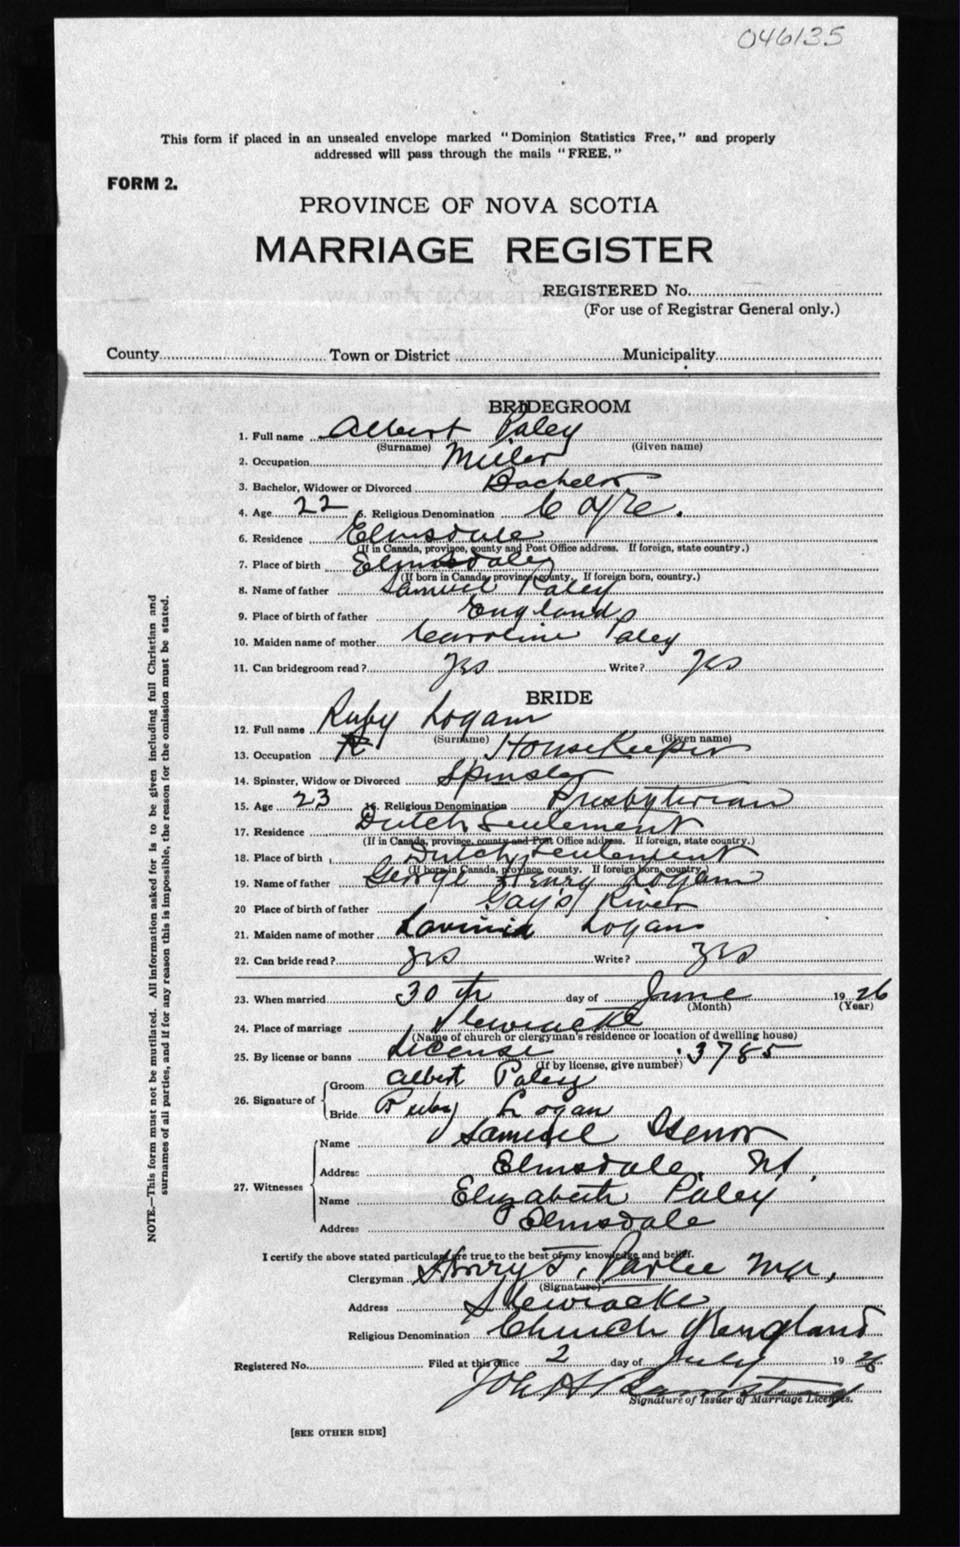 046135
This form if placed in an unsealed envelope marked "Dominion Statistics Free," and properly
addressed will pass through the mails "FREE."
FORM 2.
PROVINCE OF NOVA SCOTIA
MARRIAGE REGISTER
REGISTERED No.
(For use of Registrar General only.)
County Town or District Municipality
BRIDEGROOM
1. Full name Albert Paley
(Surname) (Given name)
2. Occupation Miller
3. Bachelor, Widower or Divorced Bachelor
4. Age 22 5. Religious Denomination C of E.
6. Residence Elmsdale
(If in Canada, province, county and Post Office address. If foreign, state country.)
7. Place of birth Elmsdale
(If born in Canada, province, county. If foreign born, country.)
8. Name of father Samuel Paley
9. Place of birth of father England
10. Maiden name of mother Caroline Paley
11. Can bridegroom read? Yes Write? Yes
BRIDE
12. Full name Ruby Logan
(Surname) (Given name)
13. Occupation HouseKeeper
14. Spinster, Widow or Divorced Spinster
15. Age 23 16. Religious Denomination Presbyterian
17. Residence Dutch Settlement
(If in Canada, province, county and Post Office address. If foreign, state country.)
18. Place of birth Dutch Settlement
(If born in Canada, province, county. If foreign born, country.)
19. Name of father George Henry Logan
20 Place of birth of father Gay's River
21. Maiden name of mother Lavinia Logan
22. Can bride read? Yes Write? Yes
23. When married 30th day of June 1926
(Month) (Year)
24. Place of marriage Stewiacke
(Name of church or clergyman's residence or location of dwelling house)
25. By license or banns License 3785
(If by license, give number)
26. Signature of Groom Albert Paley
Bride Ruby Logan
27. Witnesses Name Samuel Isenor
Address Elmsdale. N.S.
Name Elizabeth Paley
Address Elmsdale
I certify the above stated particulars are true to the best of my knowledge and belief.
Clergyman Henry T. Parlee M.A.,
(Signature)
Address Stewiacke
Religious Denomination Church of England
Registered No. Filed at this office 2 day of July 1926
Signature of Issuer of Marriage Licenses.
[SEE OTHER SIDE]
NOTE.—This form must not be mutilated. All information asked for is to be given including full Christian and
surnames of all parties, and if for any reason this is impossible, the reason for the omission must be stated.